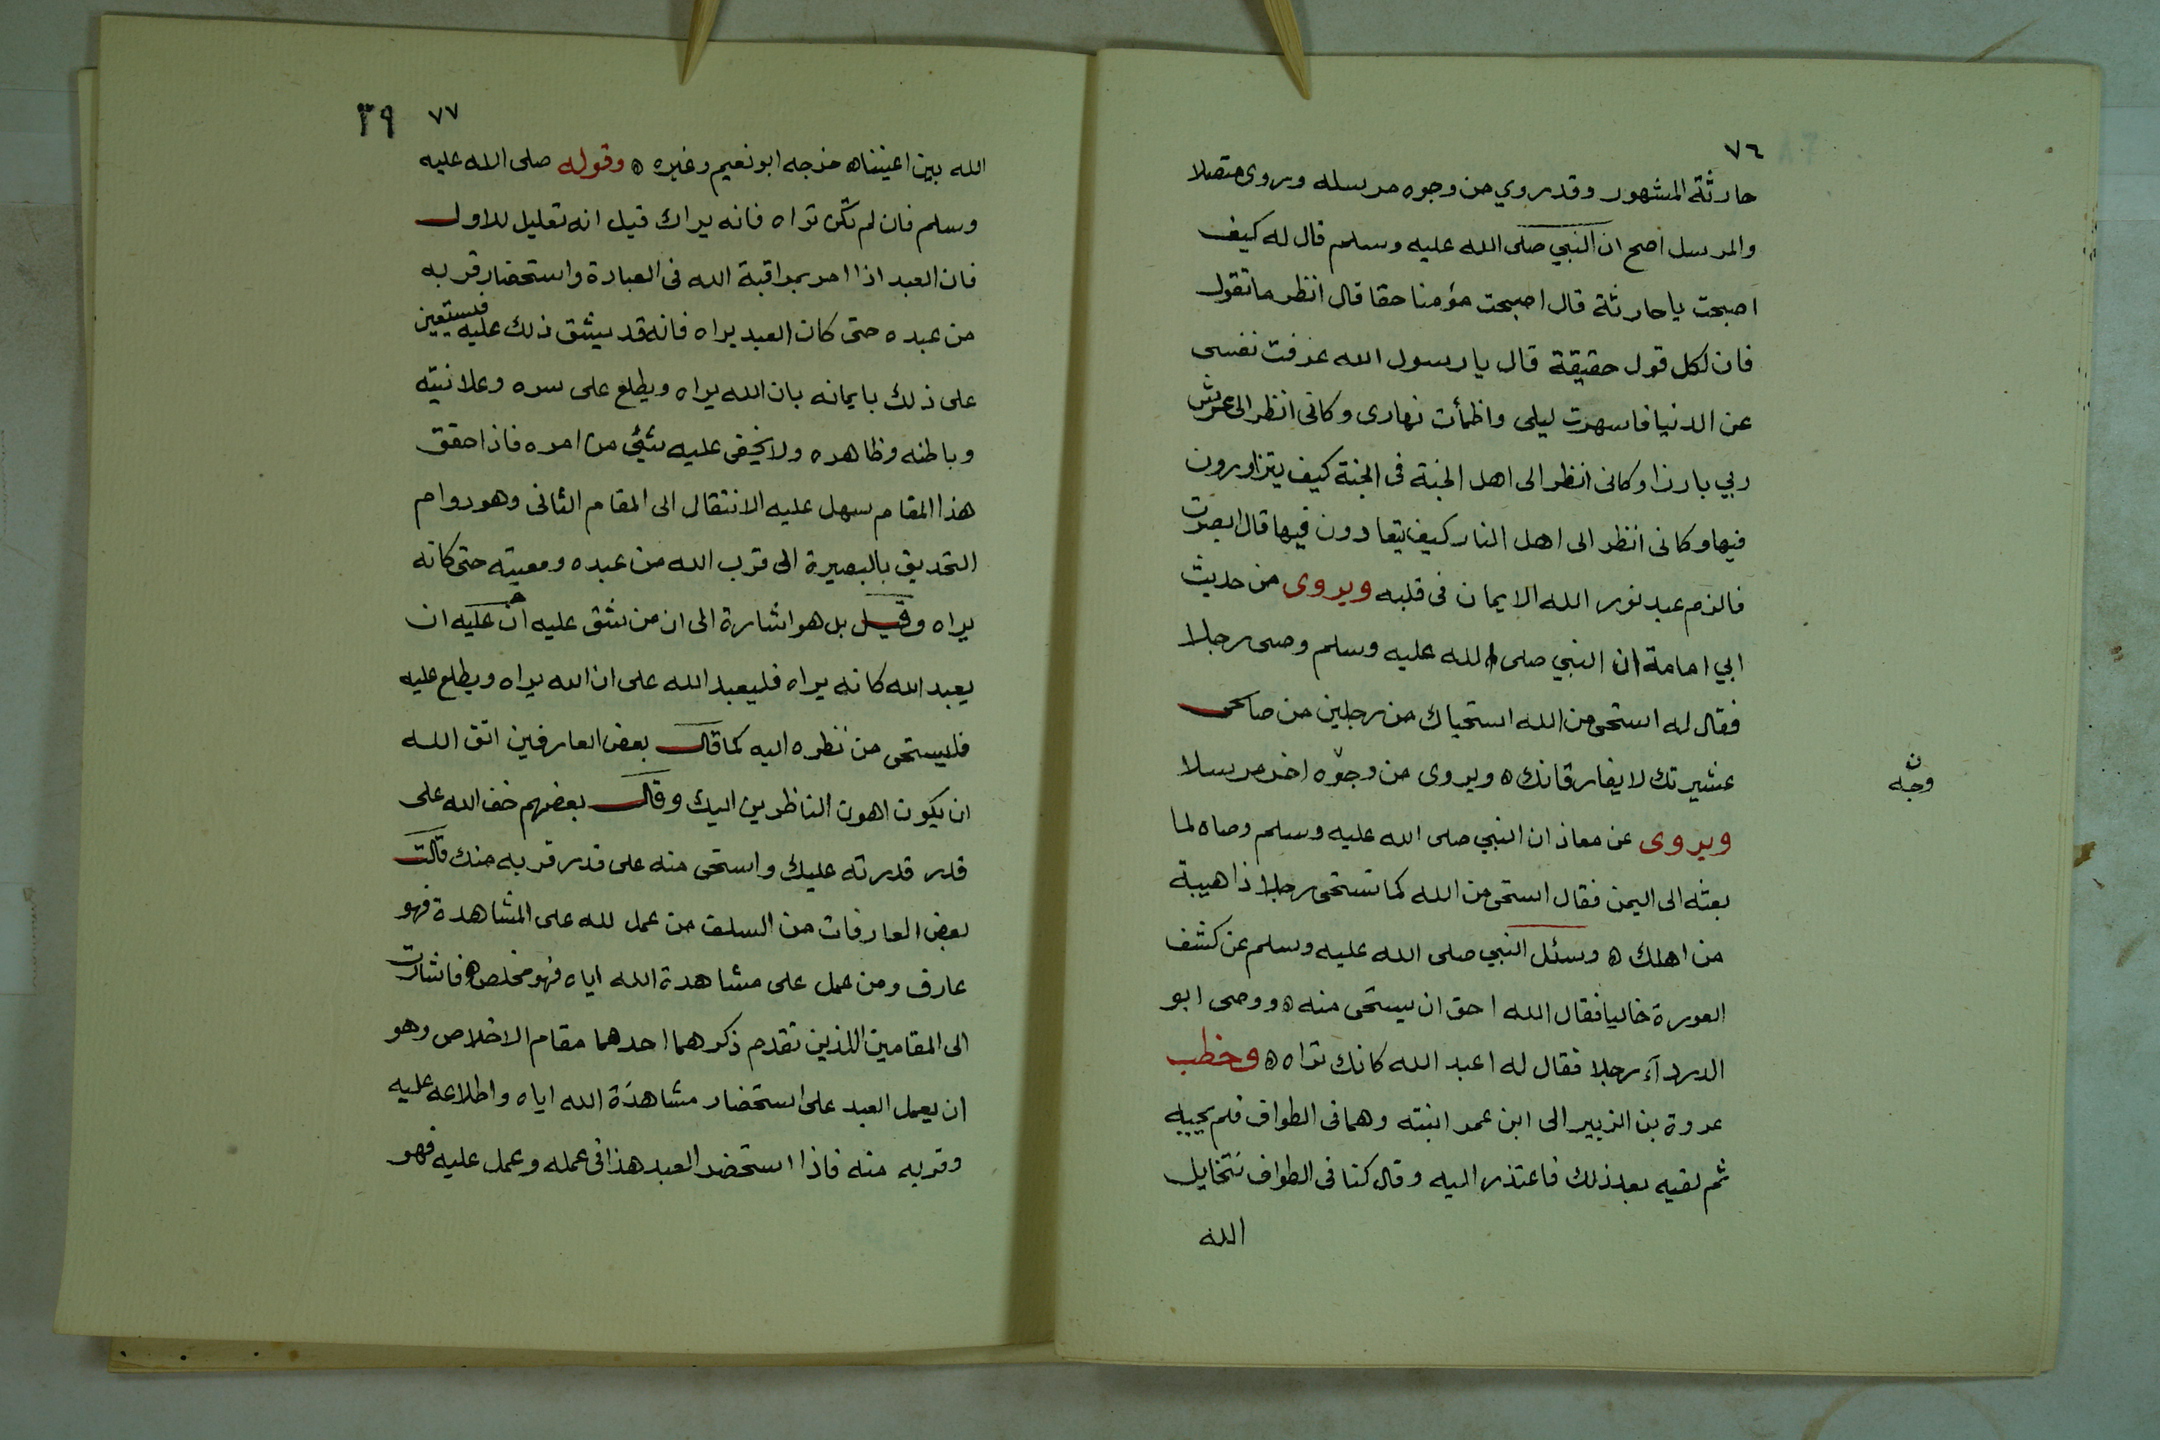 ٧٦
حارثة المشهور وقد روي من وجوه مرسله وروى متصلا
والمرسل اصح ان النبي صلى الله عليه وسلم قال له كيف
اصبحت يا حارثة قال اصبحت مؤمنا حقا قال انظر ما تقول
فان لكل قول حقيقة قال يا رسول الله عزفت نفسى
عن الدنيا فاسهرت ليلى واظمأت نهارى وكانى انظر الى عرش
ربي بارزا وكانى انظر الى اهل الجنة فى الجنة كيف يتزاورون
فيها وكانى انظر الى اهل النار كيف يتعاوون فيها قال ابصرت
فالزم عبد نور الله الايمان فى قلبه ويروى من حديث
ابي امامة ان النبي صلى الله عليه وسلم وصى رجلا
فقال له استحى من الله استحياك من رجلين من صالحى
عشيرتك لا يفارقانك ه ويروى من وجوه اخر مرسلا
ن
وجه
ويروى عن معاذ ان النبي صلى الله عليه وسلم وصاه لما
بعثه الى اليمن فقال استحى من الله كما تستحى رجلا ذا هيبة
من اهلك ه وسئل النبي صلى الله عليه وسلم عن كشف
العورة خاليا فقال الله احق ان يستحى منه ه ووصى ابو
الدرداء رجلا فقال له اعبد الله كانك تراه ه وخطب
عروة بن الزبير الى ابن عمر ابنته وهما فى الطواف فلم يجبه
ثم لقيه بعد ذلك فاعتذر اليه وقال كنا فى الطواف نتخايل
الله
٧٧ ٣٩
الله بين اعيننا ه خرجه ابو نعيم وغيره ه وقوله صلى الله عليه
وسلم فان لم تكن تراه فانه يراك قيل انه تعليل للاول
فان العبد اذا امر بمراقبة الله فى العبادة واستحضار قربه
من عبده حتى كان العبد يراه فانه قد يشق ذلك عليه فيستعين
على ذلك بايمانه بان الله يراه ويطلع على سره وعلانيته
وباطنه وظاهره ولا يخفى عليه شيئ من امره فاذا حقق
هذا المقام سهل عليه الانتقال الى المقام الثانى وهو دوام
التحديق بالبصيرة الى قرب الله من عبده ومعيته حتى كانه
يراه وقيل بل هو اشارة الى ان من شق عليه ان عليه ان
يعبد الله كانه يراه فليعبد الله على ان الله يراه ويطلع عليه
فليستحى من نظره اليه كما قال بعض العارفين اتق الله
ان يكون اهون الناظرين اليك وقال بعضهم خف الله على
قدر قدرته عليك واستحى منه على قدر قربه منك قالت
بعض العارفات من السلف من عمل لله على المشاهدة فهو
عارف ومن عمل على مشاهدة الله اياه فهو مخلص ه فاشارت
الى المقامين اللذين تقدم ذكرهما احدهما مقام الاخلاص وهو
ان يعمل العبد على استحضار مشاهدة الله اياه واطلاعه عليه
وقربه منه فاذا استحضر العبد هذا فى عمله وعمل عليه فهو